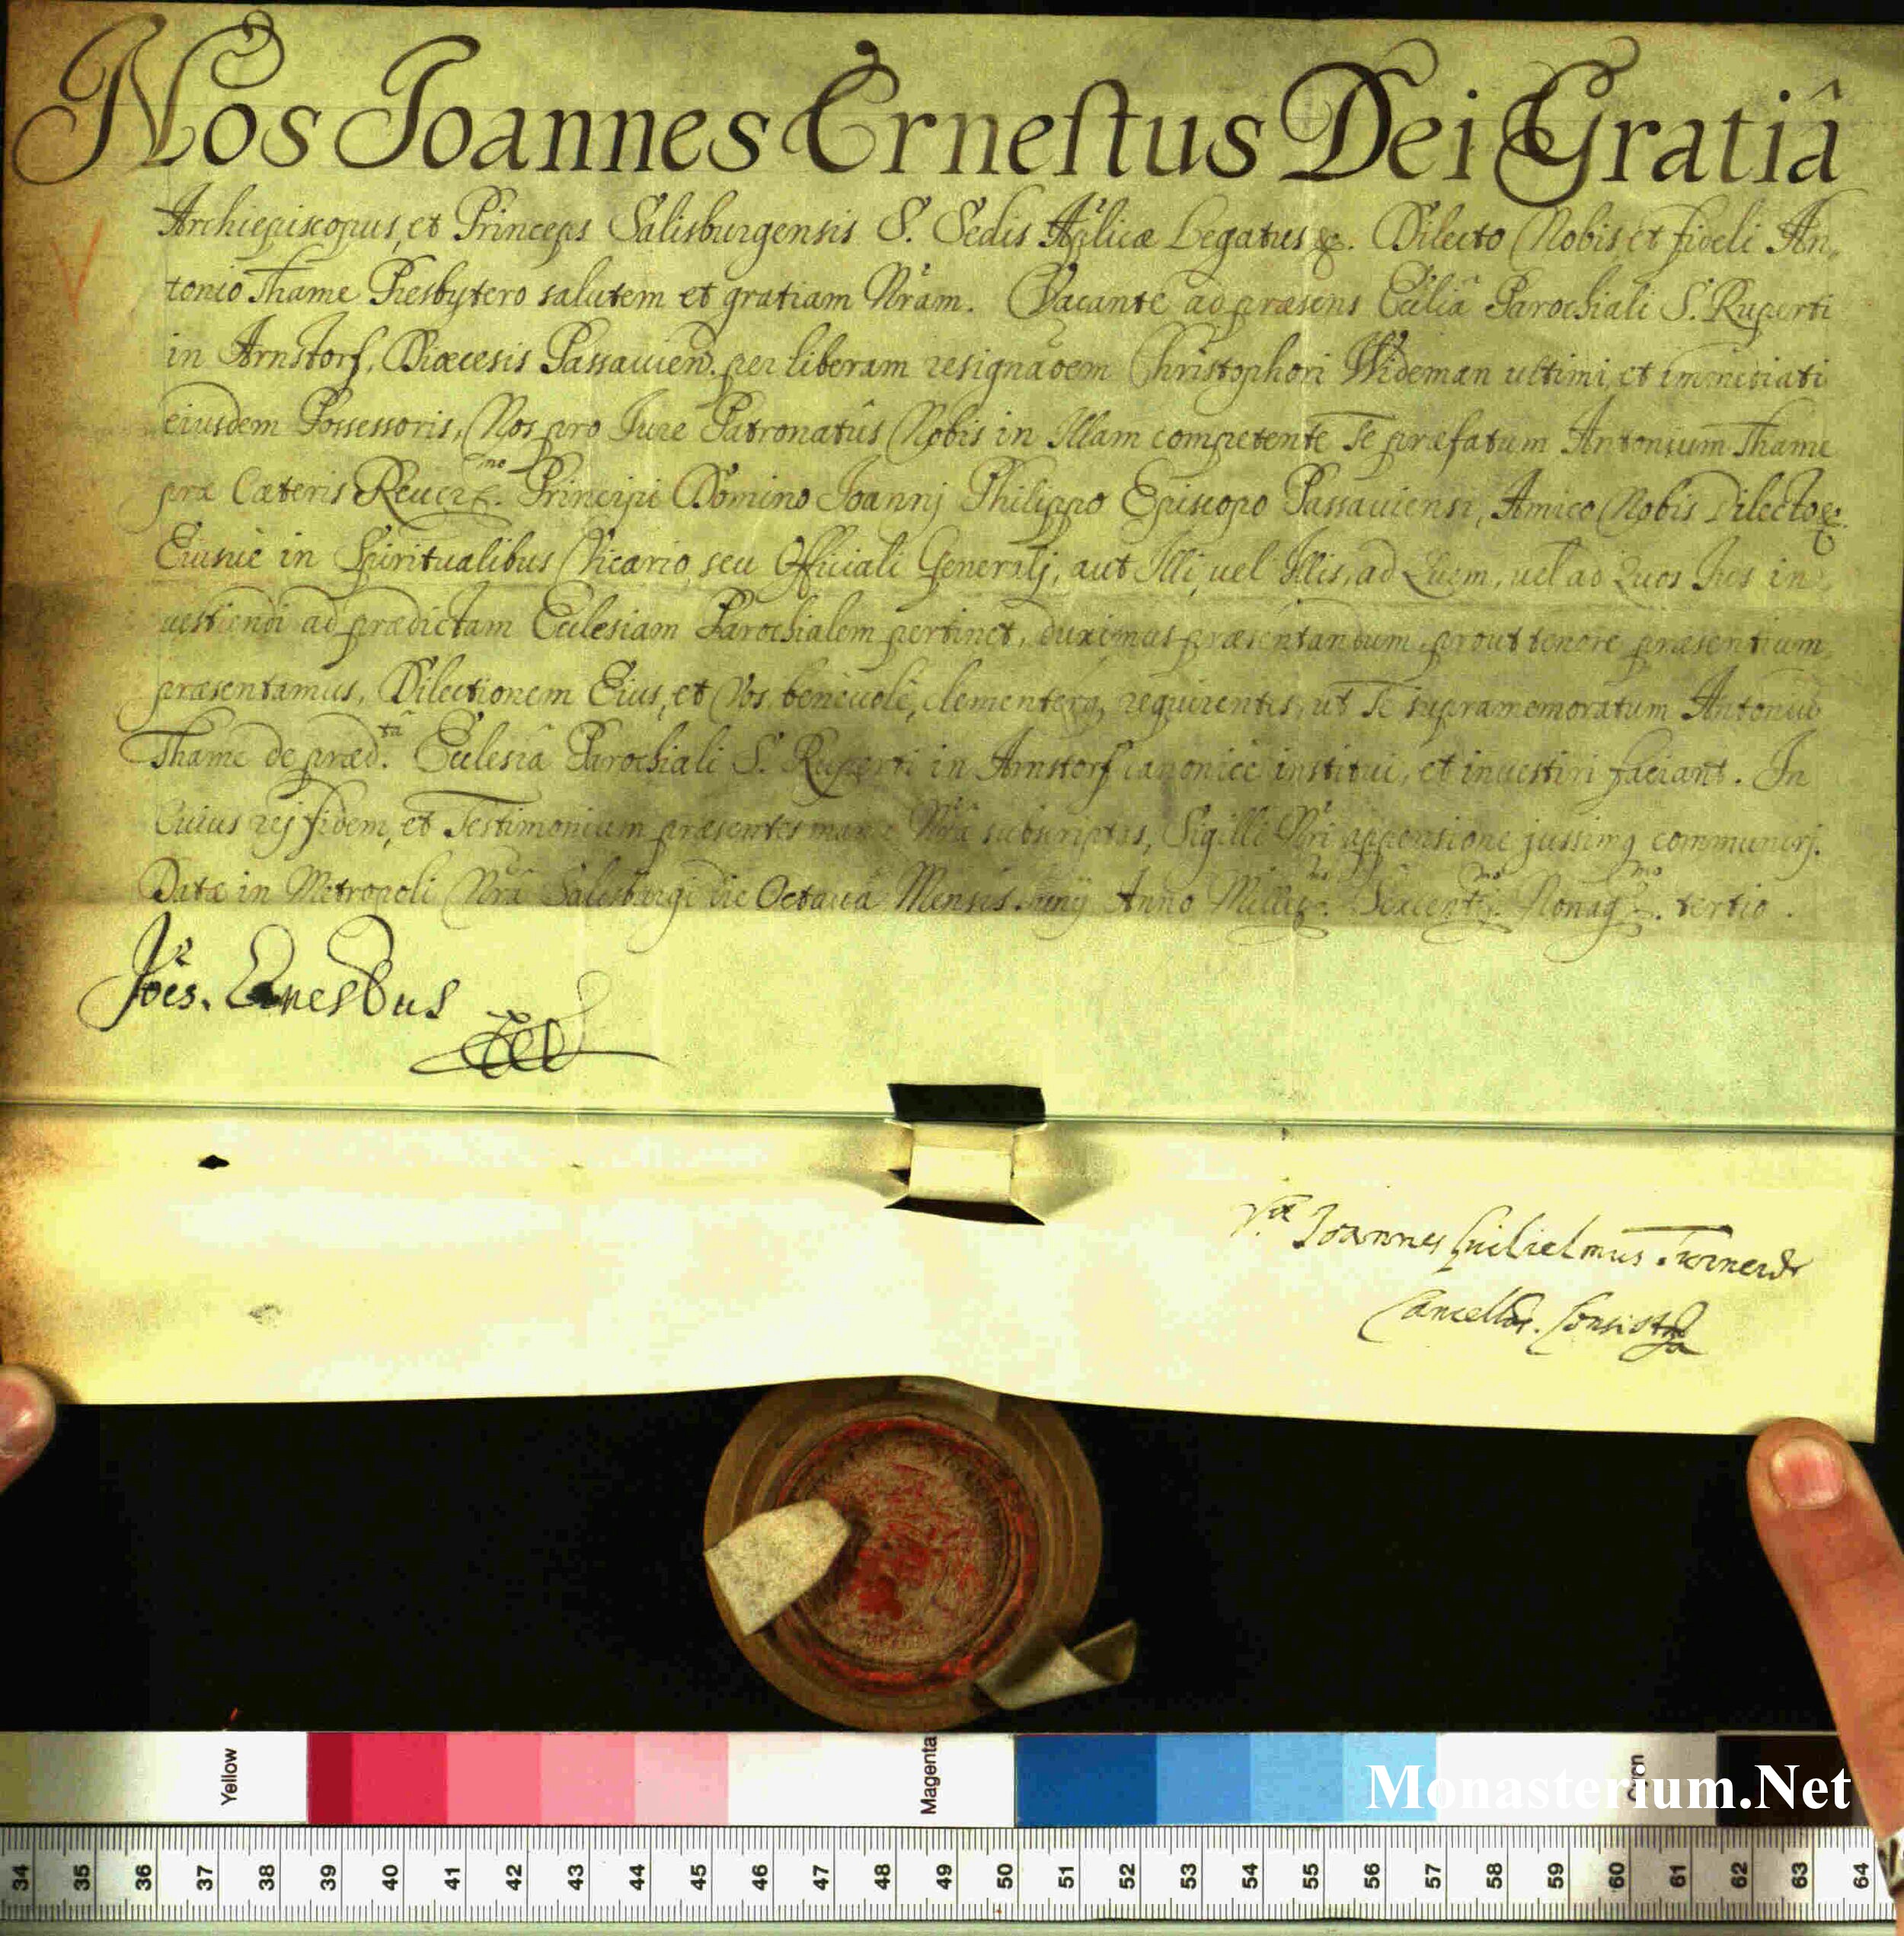 Nos Joannes Ernestus Dei Gratiâ
Archiepiscopus, et Princeps Salisburgensis S. Sedis Aplicæ Legatus &c. Dilecto Nobis, et fideli An,,
tonio Thame Presbytero salutem et gratiam Nram. Vacante ad præsens Ecclia Parochiali S. Ruperti
in Arnstorf, Diœcesis Passauien. per liberam resignaoem Christophori Wideman ultimi, et immediati
eiusdem Possessoris, Nos pro Jure Patronatûs Nobis in Illam competente Te præfatum Antonium Thame
præ Cæteris Reuer.mo Principi Domino Joannj Philippo Episcopo Passauiensi, Amico Nobis Dilecto &c.
Eiusue in Spiritualibus Vicario, seu Officiali Generalj, aut Illi, uel Illis, ad Quem, uel ad Quos Jus in
uestiendi ad prædictam Ecclesiam Parochialem pertinet, duximus præsentandum, prout tenore præsentium
præsentamus, Dilectionem Eius, et Vos beneuolè, clementerq requirentes, ut Te supramemoratum Antoniu
Thame de præd.tâ Ecclesiâ Parochiali S. Ruperti in Arnstorf canonicè institui, et inuestiri faciant. In
Cuius rej fidem, et Testimonium præsentes manu Nrâ subscriptas, Sigilli Nri appensione jussimq communirj.
Datæ in Metropoli Nrâ Salisburgi die Octauâ Mensis Junij Anno Millmo. Sexcentmo. Nonagmo. tertio.
Joes. Ernestus
Joannes Guilielmus
Cancell. Consist
Yellow
Magenta
Monasterium.Net
34 35 36 37 38 39 40 41 42 43 44 45 46 47 48 49 50 51 52 53 54 55 56 57 58 59 60 61 62 63 64